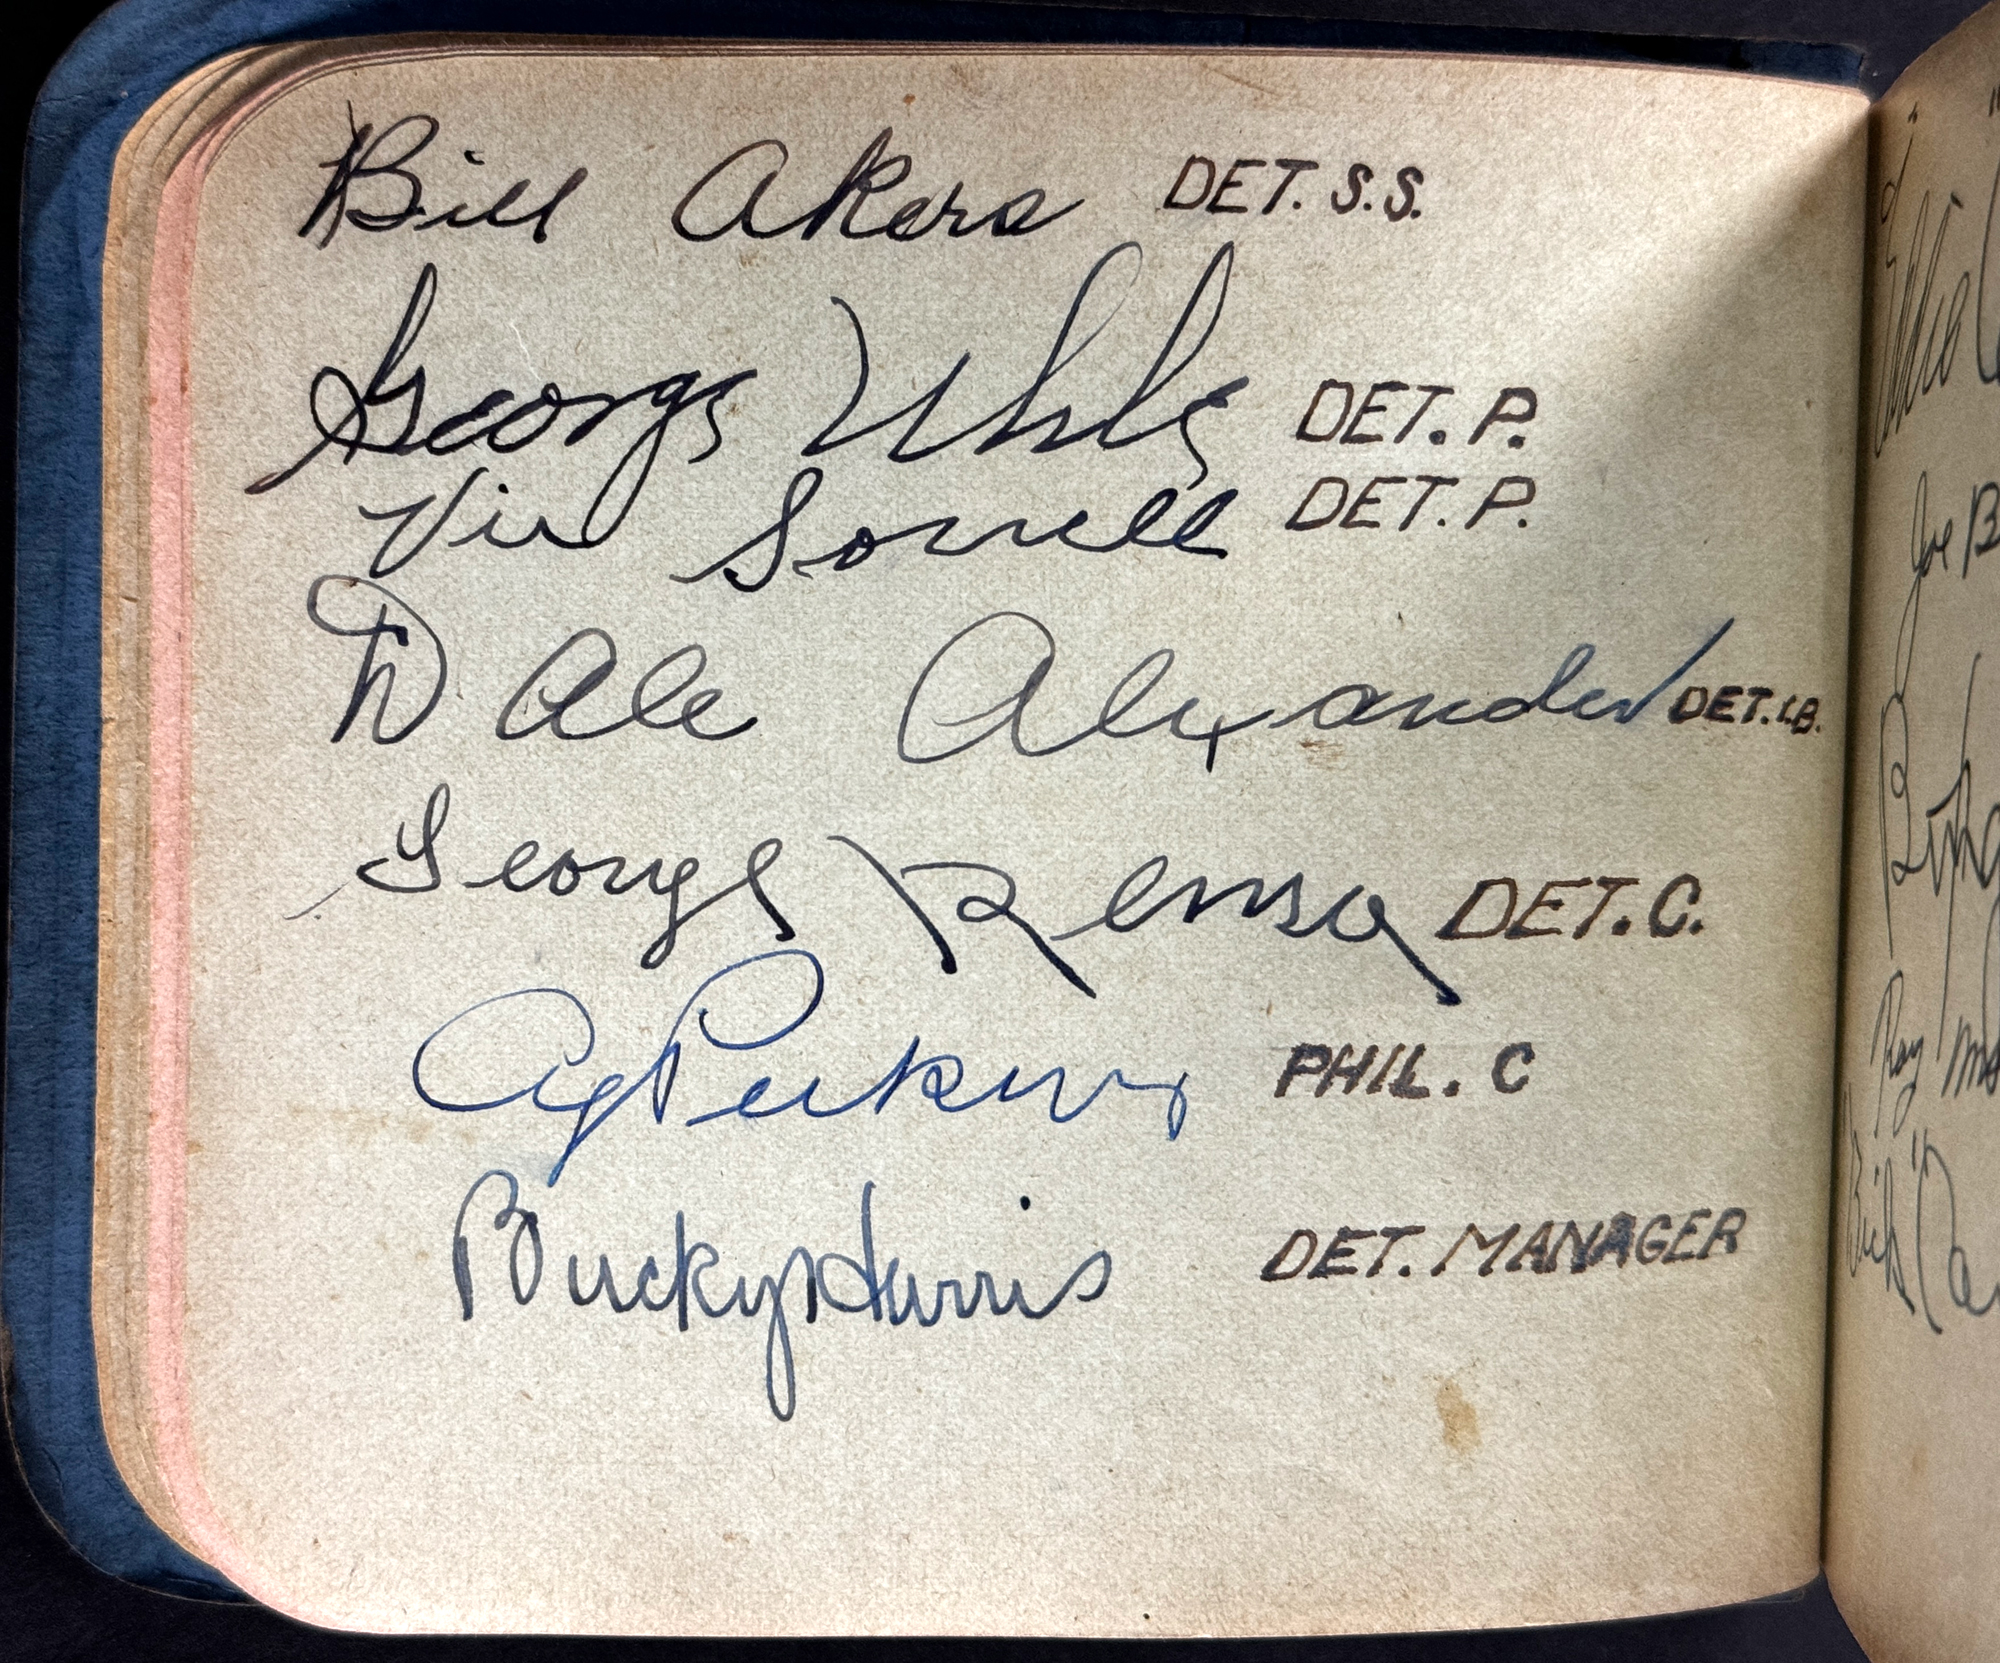 Bill Akers DET. S.S.
George Uhle DET. P.
Vic Sorrell DET. P.
Dale Alexander DET. 1.B.
George Rensa DET. C.
Cy Perkins PHIL. C
Bucky Harris DET. MANAGER
Joe B
Ray